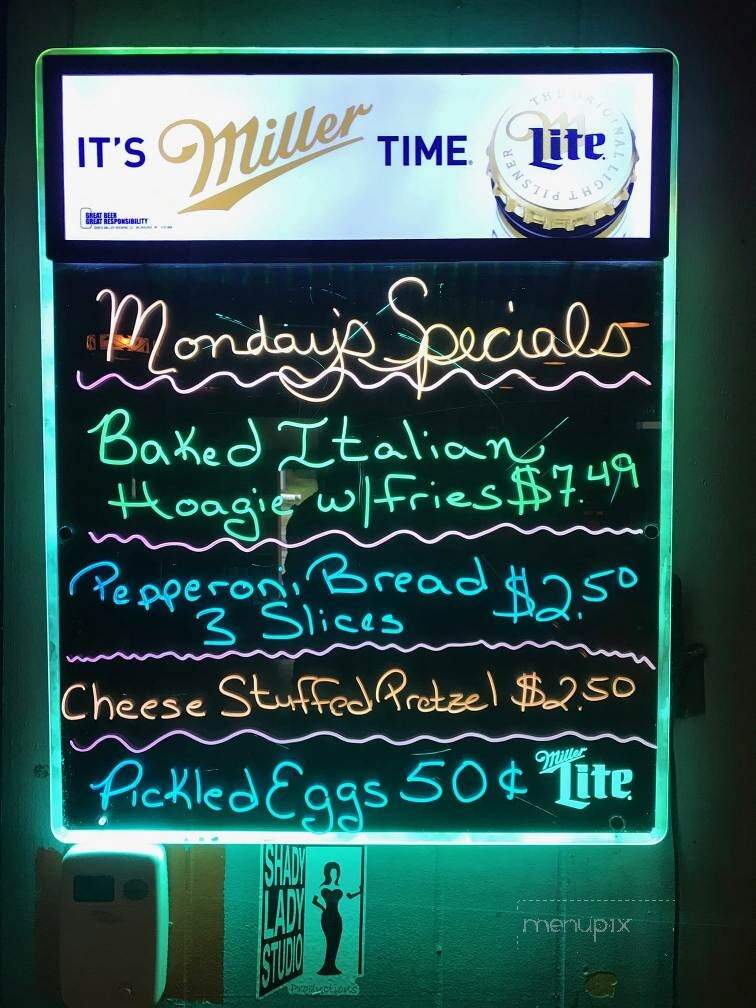 IT'S Miller TIME.
THE ORIGINAL LIGHT PILSNER
Lite
GREAT BEER
GREAT RESPONSIBILITY
Monday's Specials
Baked Italian
Hoagie w/fries $7.49
Pepperoni Bread $2.50
3 Slices
Cheese Stuffed Pretzel $2.50
Pickled Eggs 50¢
Miller
Lite
SHADY
LADY
STUDIO
Productions
menupix